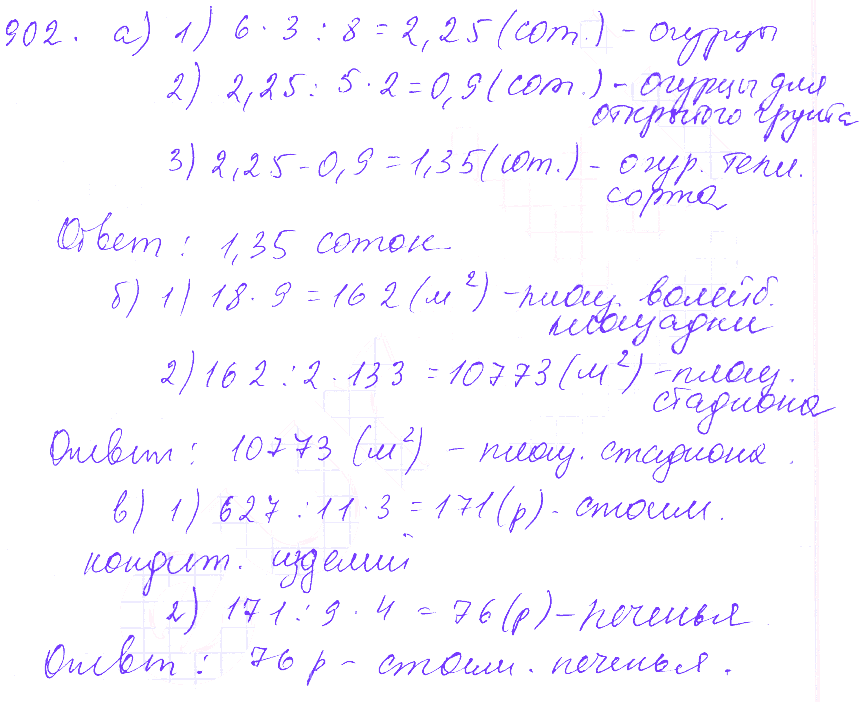 902. а) 1) 6 · 3 : 8 = 2,25 (сот.) - огурцы
2) 2,25 : 5 · 2 = 0,9 (сот.) - огурцы для
открытого грунта
3) 2,25 - 0,9 = 1,35 (сот.) - огур. тепл.
сорта
Ответ : 1,35 соток.
б) 1) 18 · 9 = 162 (м²) - площ. волейб.
площадки
2) 162 : 2 · 133 = 10773 (м²) - площ.
стадиона
Ответ : 10773 (м²) - площ. стадиона.
в) 1) 627 : 11 · 3 = 171 (р) - стоим.
кондит. изделий
2) 171 : 9 · 4 = 76 (р) - печенья
Ответ : 76 р - стоим. печенья.